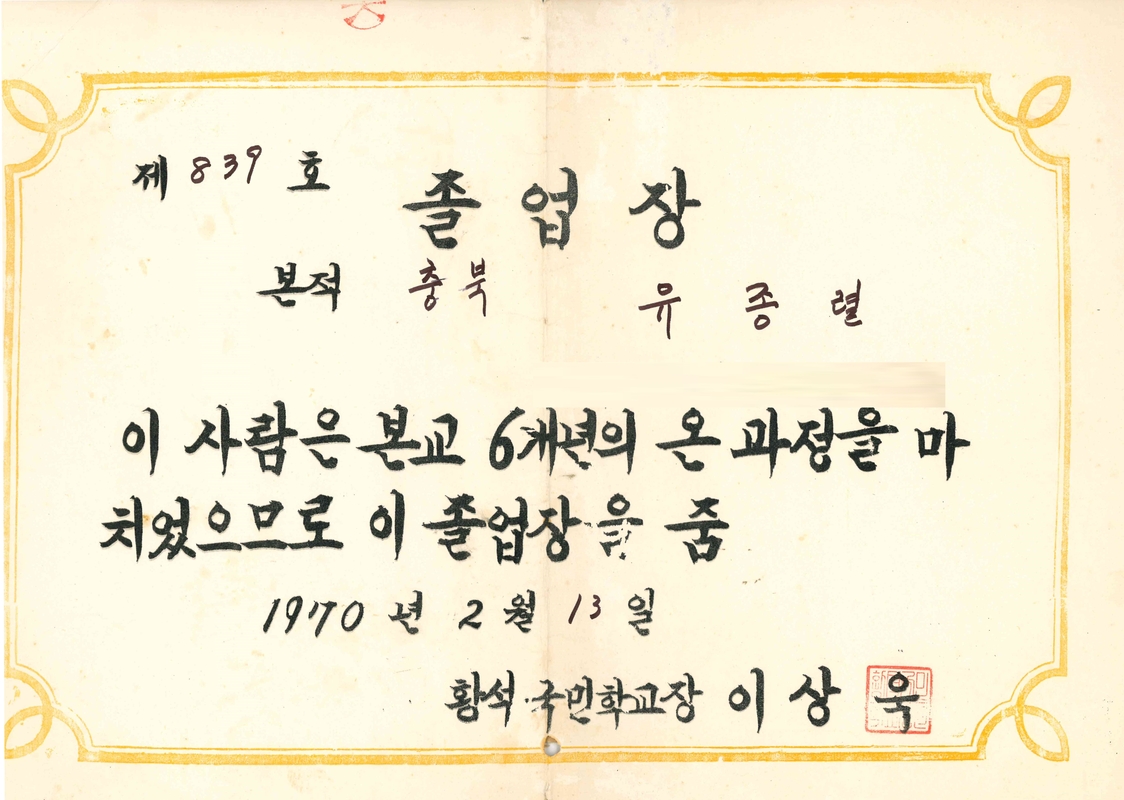 제 839 호
졸 업 장
본적 충북 유 종 렬
이 사람은 본교 6개년의 온 과정을 마
치었으므로 이 졸업장을 줌
1970 년 2 월 13 일
황석국민학교장 이 상 욱